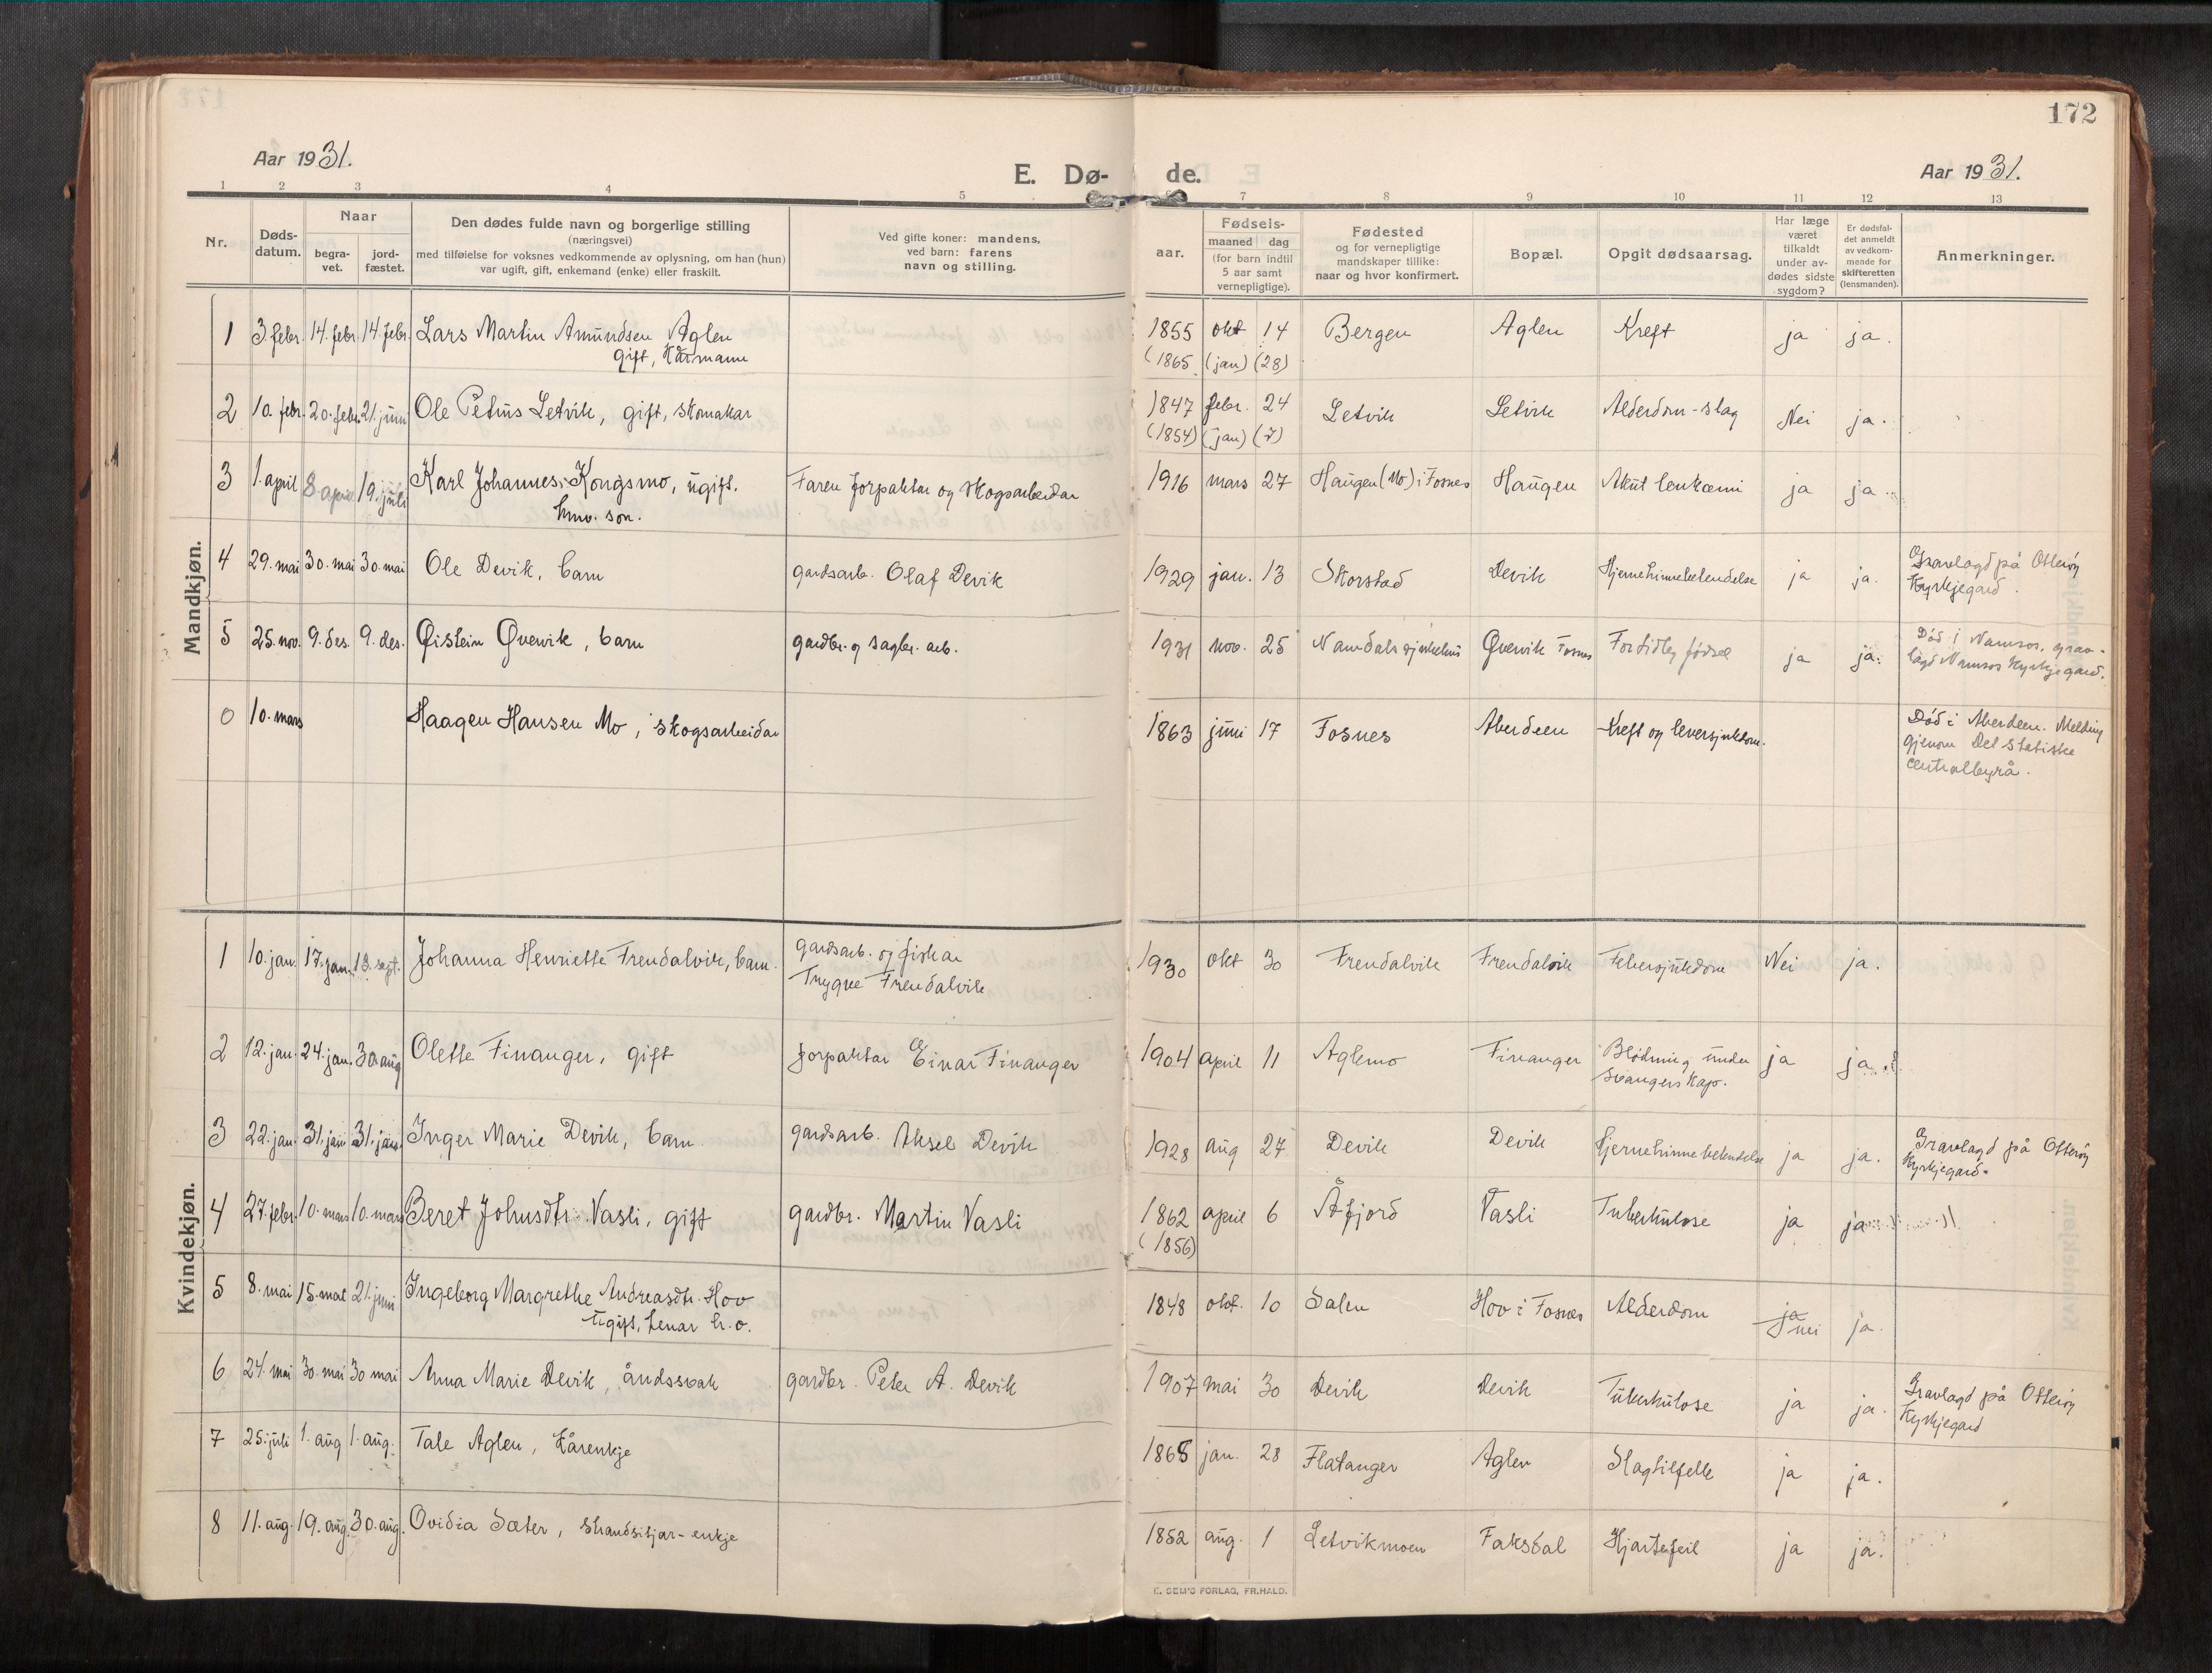 172
Aar 1931.
E. Dø- de.
Aar 1931.
1 2 3 4 5 6 7 8 9 10 11 12 13
Nr.
Døds-
datum.
Naar
begra-
vet.
jord-
fæstet.
Den dødes fulde navn og borgerlige stilling
(næringsvei)
med tilføielse for voksnes vedkommende av oplysning, om han (hun)
var ugift, gift, enkemand (enke) eller fraskilt.
Ved gifte koner: mandens,
ved barn: farens
navn og stilling.
Fødsels-
aar.
maaned dag
(for barn indtil
5 aar samt
vernepligtige).
Fødested
og for vernepligtige
mandskaper tillike:
naar og hvor konfirmert.
Bopæl.
Opgit dødsaarsag.
Har læge
været
tilkaldt
under av-
dødes sidste
sygdom?
Er dødsfal-
det anmeldt
av vedkom-
mende for
skifteretten
(lensmanden).
Anmerkninger.
Mandkjøn.
1 3. febr. 14. febr. 14. febr. Lars Martin Amundsen Aglen 1855 okt 14 Bergen Aglen Kreft ja ja.
gift, Kårmann (1865 (jan) (28)
2 10. febr. 20. febr. 21. juni Ole Petrus Letvik, gift, skomakar 1847 febr. 24 Letvik Letvik Alderdom-slag Nei ja.
(1854) (jan) (7)
3 1. april 8 april 19. juli Karl Johannes Kongsmo, ugift. Faren forpaktar og skogsarbeidar 1916 mars 27 Haugen (Mo) i Fosnes Haugen Akut leukæmi ja ja
hmv. son.
4 29. mai 30. mai 30. mai Ole Devik, barn gardsarb. Olaf Devik 1929 jan. 13 Skorstad Devik Hjernehinnebetendelse ja ja. Gravlagd på Otterøy
Kyrkjegard.
5 25. nov. 9. des. 9. des. Øistein Øvervik, barn gardbr. og sagbr. arb. 1931 nov. 25 Namdals sjukehus Øvervik Fosnes For tidleg fødsel ja ja. Død i Namsos, grav-
lagd Namsos Kyrkjegard.
0 10. mars Haagen Hansen Mo, skogsarbeidar 1863 juni 17 Fosnes Aberdeen Kreft og leversjukdom. Død i Aberdeen. Melding
gjenom Det statistiske
centralbyrå.
Kvindekjøn.
1 10. jan. 17. jan. 13. sept. Johanna Henriette Frendalvik, barn. gardsarb. og fiskar 1930 okt 30 Frendalvik Frendalvik Febersjukdom Nei ja.
Trygve Frendalvik
2 12. jan. 24. jan. 30 aug Olette Finanger, gift forpaktar Einar Finanger 1904 april 11 Aglemo Finanger Blødning under ja ja.
svangerskap.
3 22. jan. 31. jan 31. jan. Inger Marie Devik, barn. gardsarb. Aksel Devik 1928 aug 27 Devik Devik Hjernehinnebetendelse ja ja. Gravlagd på Otterøy
Kyrkjegard.
4 27. febr. 10. mars 10. mars Beret Johnsdtr. Vasli, gift gardbr. Martin Vasli 1862 april 6 Åfjord Vasli Tuberkulose ja ja
(1856)
5 8. mai 15. mai 21. juni Ingeborg Margrethe Andreasdtr. Hov 1848 okt. 10 Salen Hov i Fosnes Alderdom ja nei ja.
Ugift, tenar h.o.
6 24. mai 30. mai 30 mai Anna Marie Devik, åndssvak gardbr. Peter A. Devik 1907 mai 30 Devik Devik Tuberkulose ja ja. Gravlagd på Otterøy
Kyrkjegard
7 25. juli 1. aug 1. aug. Tale Aglen, Kårenkje 1865 jan. 28 Flatanger Aglen Slagtilfelle ja ja.
8 11. aug. 19. aug. 30. aug. Ovidia Sæter, strandsitjar-enkje 1852 aug. 1 Letvikmoen Faksdal Hjartefeil ja ja.
E. SEM'S FORLAG, FR.HALD.